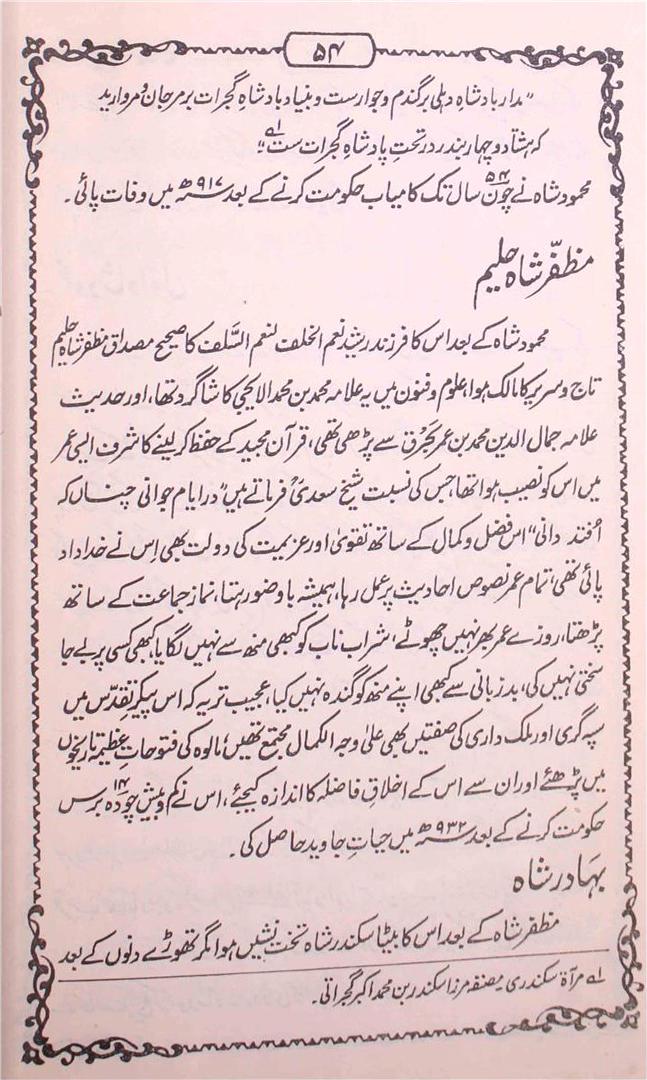 ۵۴
"مدار بادشاہِ دہلی بر گندم و جوارست و بنیاد بادشاہِ گجرات بر مرجان و مروارید
کہ ہشتاد و چہار بندر در تحتِ پادشاہِ گجرات ست"؂۱
محمود شاہ نے چون ۵۴ سال تک کامیاب حکومت کرنے کے بعد ۹۱۷ھ میں وفات پائی۔
مظفّر شاہ حلیم
محمود شاہ کے بعد اس کا فرزند رشید نعم الخلف لنعم السَّلف کا صحیح مصداق مظفر شاہ حلیم
تاج و سریر کا مالک ہوا، علوم و فنون میں یہ علامہ محمد بن محمد الایجی کا شاگرد تھا، اور حدیث
علامہ جمال الدین محمد بن عمر بَحرُق سے پڑھی تھی، قرآن مجید کے حفظ کر لینے کا شرف ایسی عمر
میں اس کو نصیب ہوا تھا، جس کی نسبت شیخ سعدیؒ فرماتے ہیں "در ایام جوانی چناں کہ
اُفتد دانی" اس فضل و کمال کے ساتھ تقویٰ اور عزیمت کی دولت بھی اِس نے خداداد
پائی تھی، تمام عمر نصوص احادیث پر عمل رہا، ہمیشہ باوضو رہتا، نماز جماعت کے ساتھ
پڑھتا، روزے عمر بھر نہیں چھوٹے، شراب ناب کو کبھی منھ سے نہیں لگایا، کبھی کسی پر بے جا
سختی نہیں کی، بدزبانی سے کبھی اپنے منھ کو گندہ نہیں کیا، عجیب تر یہ کہ اس پیکرِ تقدّس میں
سپہ گری اور ملک داری کی صفتیں بھی علیٰ وجہ الکمال مجتمع تھیں، مالوہ کی فتوحات عظیمہ تاریخوں
میں پڑھئے اور ان سے اس کے اخلاقِ فاضلہ کا اندازہ کیجئے، اس نے کم و بیش چودہ ۱۴ برس
حکومت کرنے کے بعد ۹۳۲ھ میں حیاتِ جاوید حاصل کی۔
بہادر شاہ
مظفر شاہ کے بعد اس کا بیٹا سکندر شاہ تخت نشیں ہوا مگر تھوڑے دنوں کے بعد
؂۱ مرآۃ سکندری مصنفہ مرزا سکندر بن محمد اکبر گجراتی۔